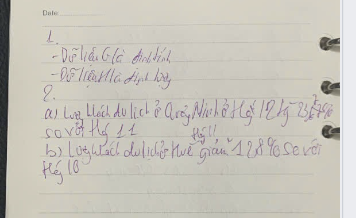 Date
1.
- Dữ liệu G là định tính
- Dữ liệu H là định lượng
2.
a) Lượng khách du lịch ở Quảng Ninh ở tháng 12
so với tháng 11
b) Lượng khách du lịch ở Huế giảm 12,8% so với
tháng 10